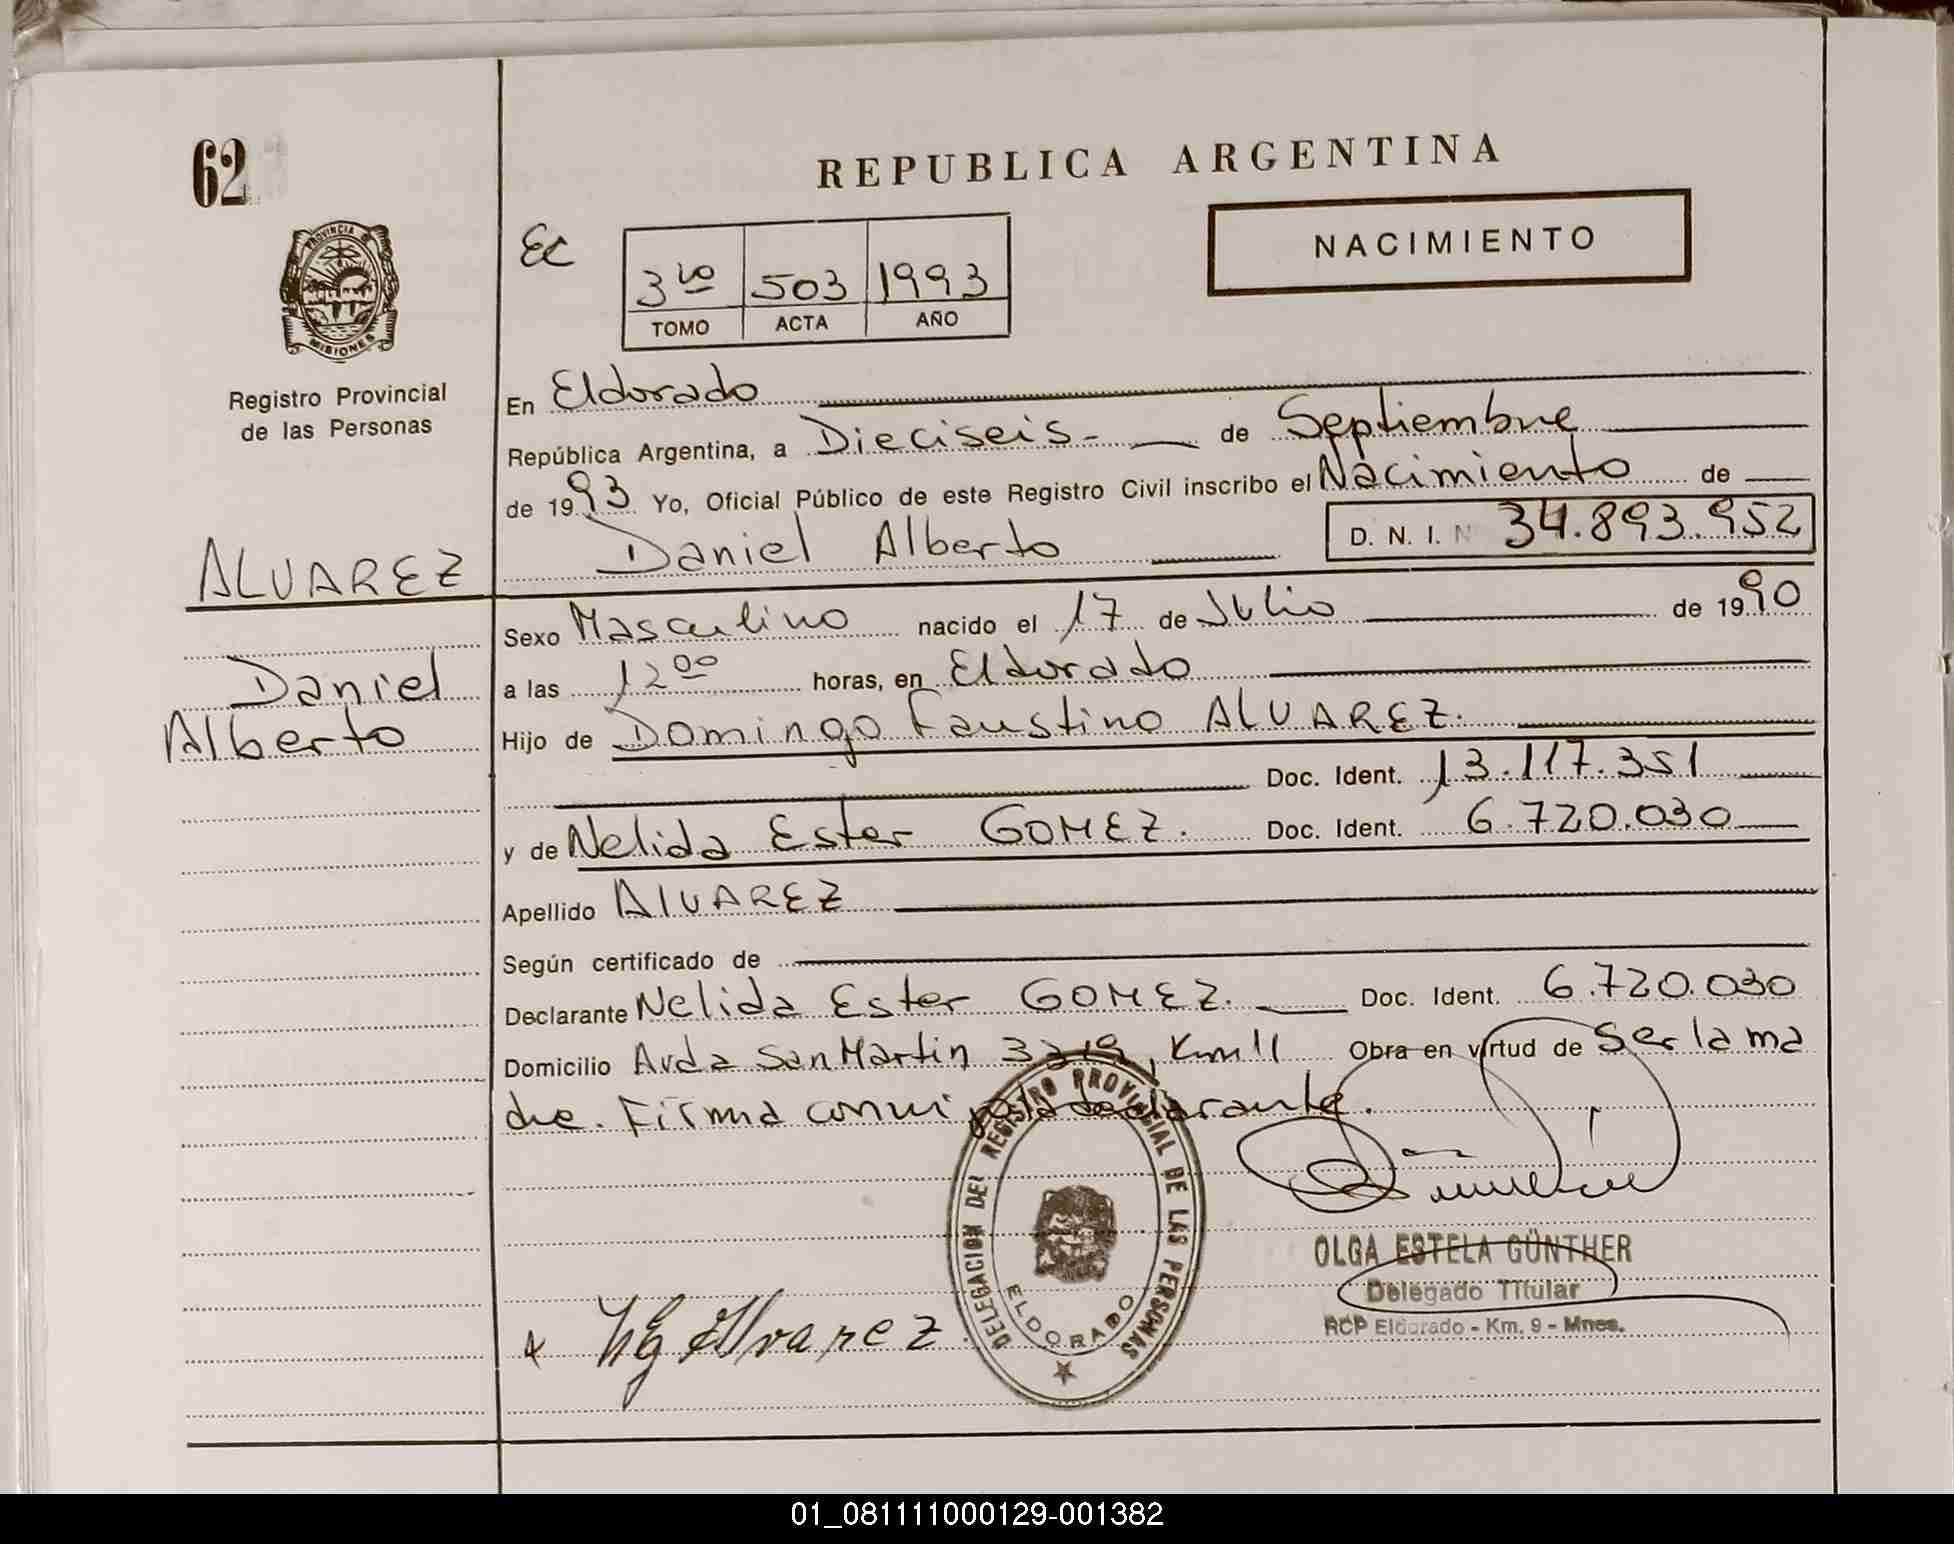 62
REPUBLICA ARGENTINA
PROVINCIA D
MISIONES
Registro Provincial
de las Personas
Ec
3ro 503 1993
TOMO ACTA AÑO
NACIMIENTO
En Eldorado
República Argentina, a Dieciseis - de Septiembre
de 1993 Yo, Oficial Público de este Registro Civil inscribo el Nacimiento de
Daniel Alberto D. N. I. N 34.893.952
ALVAREZ
Daniel
Alberto
Sexo Masculino nacido el 17 de Julio de 1990
a las 12 00 horas, en Eldorado
Hijo de Domingo Faustino ALVAREZ.
Doc. Ident. 13.117.351
y de Nelida Ester GOMEZ. Doc. Ident. 6.720.030
Apellido ALVAREZ
Según certificado de
Declarante Nelida Ester GOMEZ. Doc. Ident. 6.720.030
Domicilio Avda San Martin , Km 11 Obra en virtud de Ser la ma
dre. Firma conmi go la declarante.
DELEGACION DEL REGISTRO PROVINCIAL DE LAS PERSONAS
ELDORADO
OLGA ESTELA GÜNTHER
Delegado Titular
RCP Eldorado - Km. 9 - Mnes.
x Alvarez
01_081111000129-001382